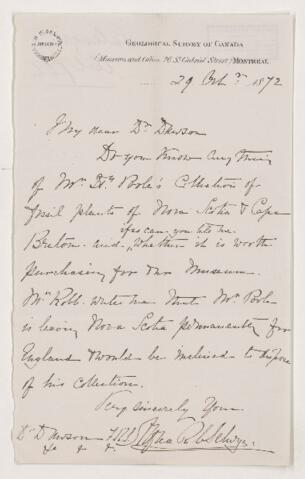 GEOLOGICAL SURVEY OF CANADA
(Museum and Office, 76 St. Gabriel Street) MONTREAL
29 Octr. 1872
My dear Dr Dawson
Do you know any thing
of Mr Poole's Collection of
fossil plants of Nova Scotia & Cape
if so can you tell me
Breton and whether it is worth
purchasing for our Museum.
Mr Robb writes me that Mr Poole
is leaving Nova Scotia permanently for
England & would be inclined to dispose
of his collection.
Very sincerely Yours
Dr Dawson FRS Alfred R C Selwyn
&c & &